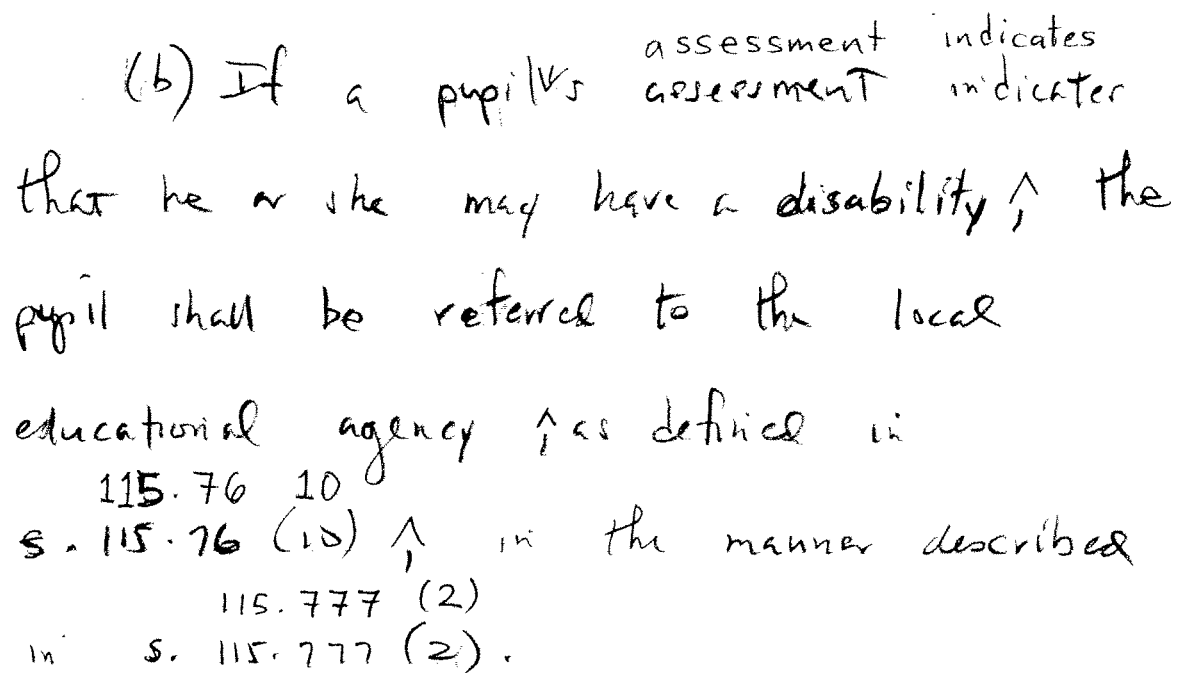 assessment indicates
(b) If a pupil's assessment indicates
that he or she may have a disability, the
pupil shall be referred to the local
educational agency, as defined in
115.76 10
s. 115.76 (10), in the manner described
115.777 (2)
in s. 115.777 (2).